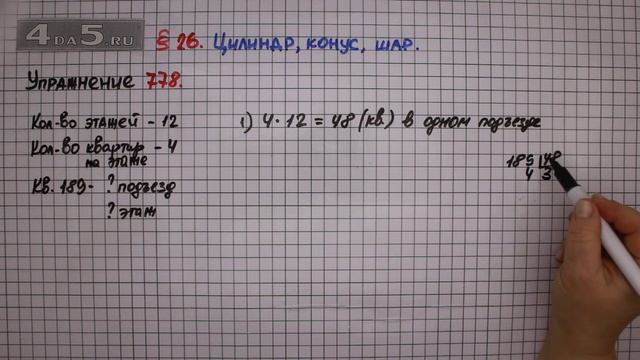 4DA5.RU
§ 26. Цилиндр, конус, шар.
Упражнение 778.
Кол-во этажей - 12
Кол-во квартир - 4
на этаже
Кв. 189 - ? подъезд
? этаж
1) 4 · 12 = 48 (кв.) в одном подъезде
189 48
4 3